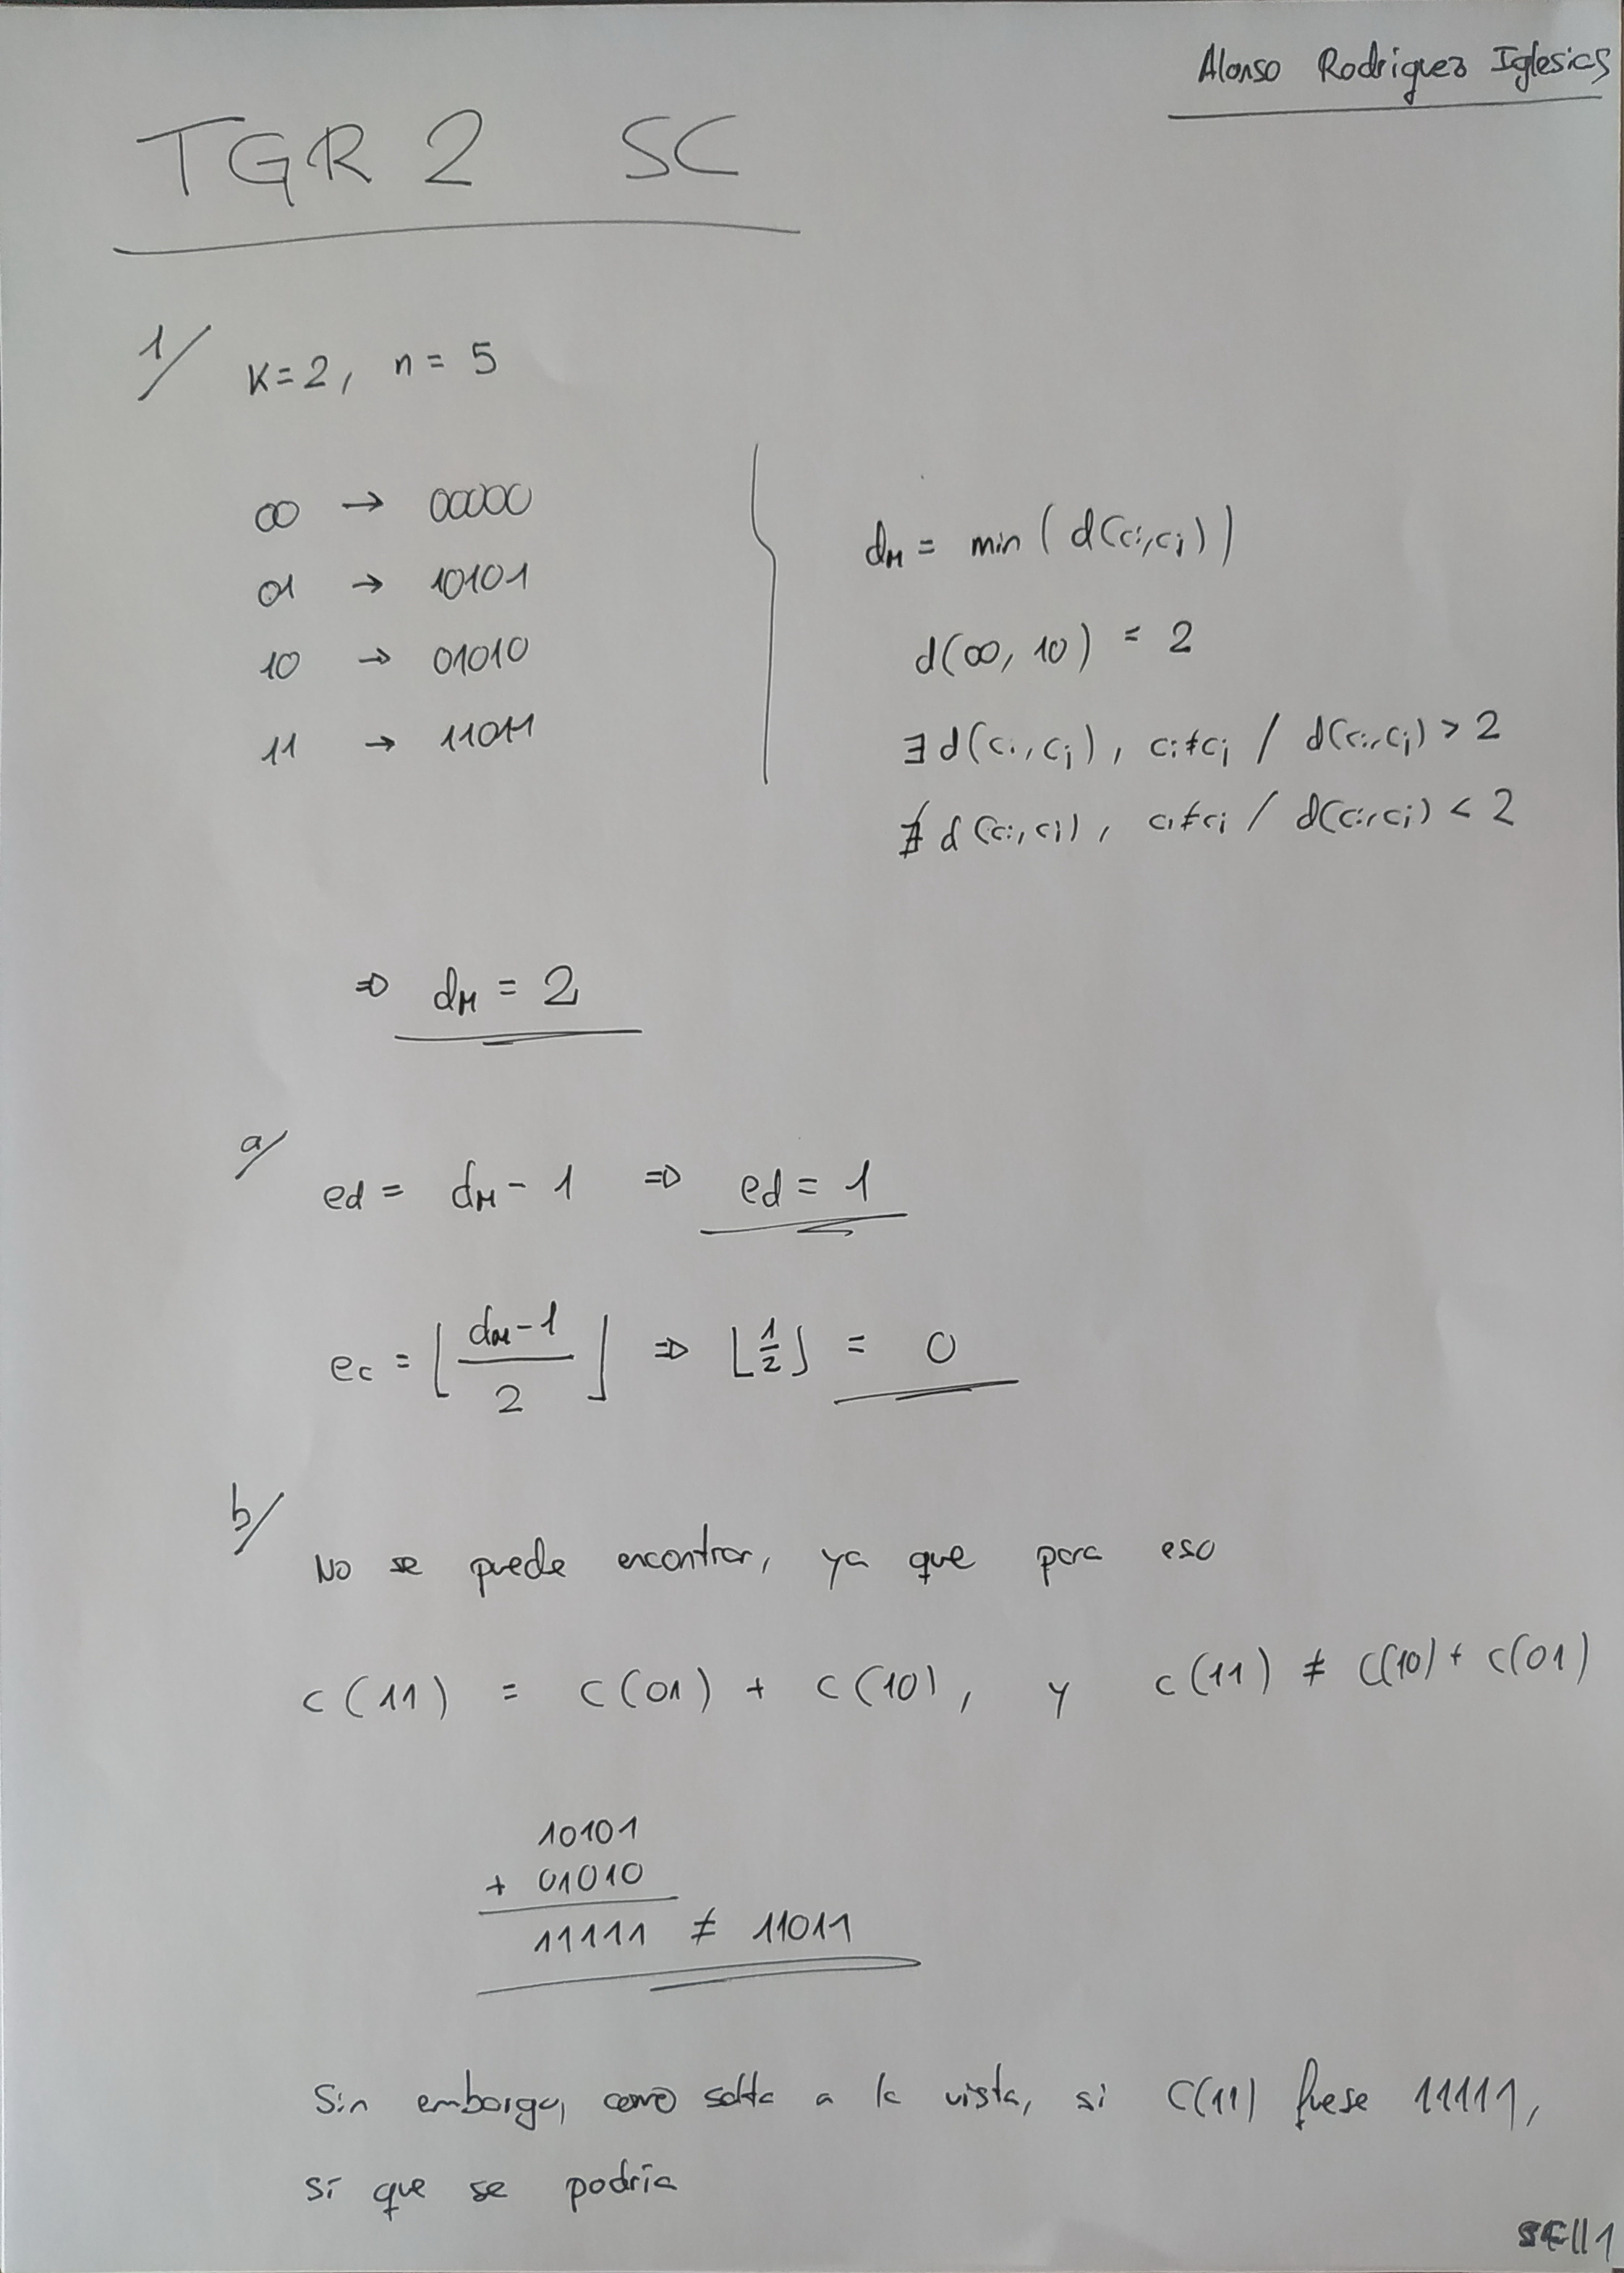 Alonso Rodriguez Iglesias
TGR 2 SC
1/ K=2, n = 5
00 → 00000
01 → 10101
10 → 01010
11 → 11011
dM = min ( d(ci,cj) )
d(00, 10) = 2
∃ d(ci, cj), ci≠cj / d(ci,cj) > 2
∄ d(ci,cj), ci≠cj / d(ci,cj) < 2
⇒ dM = 2
a/
ed = dM - 1 ⇒ ed = 1
ec = ⌊(dM-1)/2⌋ ⇒ ⌊1/2⌋ = 0
b/
No se puede encontrar, ya que para eso
c(11) = c(01) + c(10), y c(11) ≠ c(10) + c(01)
10101
+ 01010
11111 ≠ 11011
Sin embargo, como salta a la vista, si C(11) fuese 11111,
sí que se podría